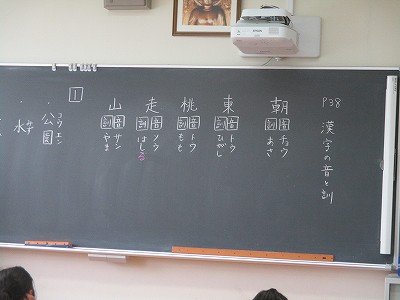 P38 漢字の音と訓
朝
音 チョウ
訓 あさ
東
音 トウ
訓 ひがし
桃
音 トウ
訓 もも
走
音 ソウ
訓 はしる
山
音 サン
訓 やま
1
公園
コウエン
水